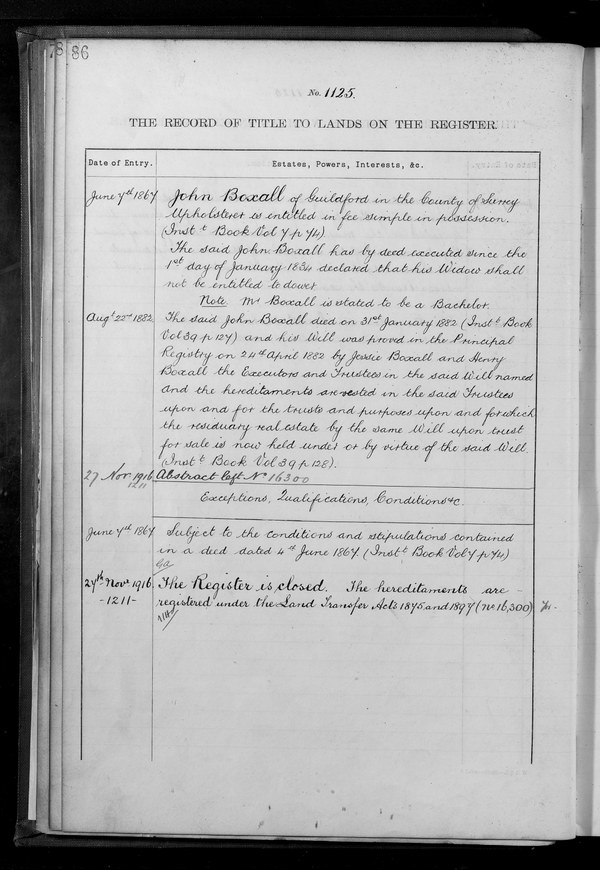 86
No. 1125.
THE RECORD OF TITLE TO LANDS ON THE REGISTER.
Date of Entry. Estates, Powers, Interests, &c.
June 7th 1867 John Boxall of Guildford in the County of Surrey
Upholsterer is entitled in fee simple in possession.
(Instt Book Vol 7 p 74)
The said John Boxall has by deed executed since the
1st day of January 1834 declared that his Widow shall
not be entitled to dower
Note Mr Boxall is stated to be a Bachelor.
Augt 22nd 1882. The said John Boxall died on 31st January 1882 (Instt Book
Vol 39 p 127) and his Will was proved in the Principal
Registry on 24th April 1882 by Jessie Boxall and Henry
Boxall the Executors and Trustees in the said Will named
and the hereditaments are vested in the said Trustees
upon and for the trusts and purposes upon and for which
the residuary real estate by the same Will upon trust
for sale is now held under or by virtue of the said Will.
(Instt Book Vol 39 p 128).
27 Nov. 1916 Abstract left No 16300
1211
Exceptions, Qualifications, Conditions &c.
June 7th 1867 Subject to the conditions and stipulations contained
in a deed dated 4th June 1867 (Instt Book Vol 7 p 74)
27th Novr 1916 The Register is closed. The hereditaments are
-1211- registered under the Land Transfer Acts 1875 and 1897 (No 16,300)